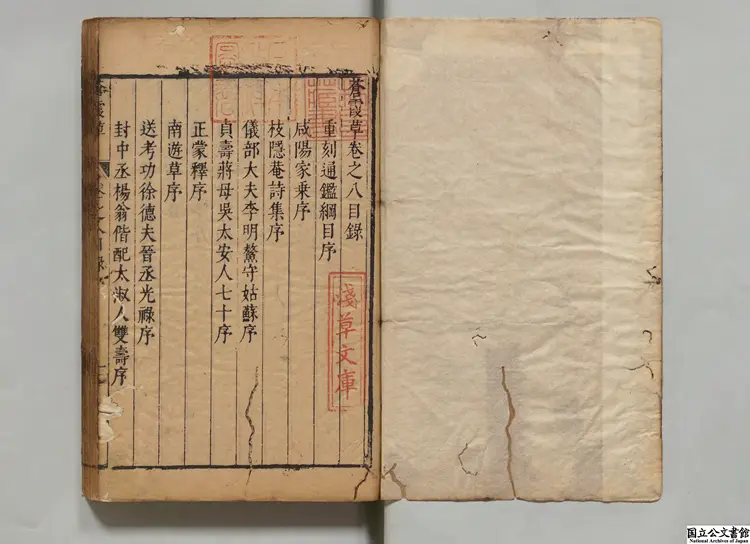 蒼霞草卷之八目錄
重刻通鑑綱目序
咸陽家乘序
枝隱菴詩集序
儀部大夫李明鰲守姑蘇序
貞壽蔣母吳太安人七十序
正蒙釋序
南遊草序
送考功徐德夫晉丞光祿序
封中丞楊翁偕配太淑人雙壽序
蒼霞草
淺草文庫
国立公文書館
National Archives of Japan